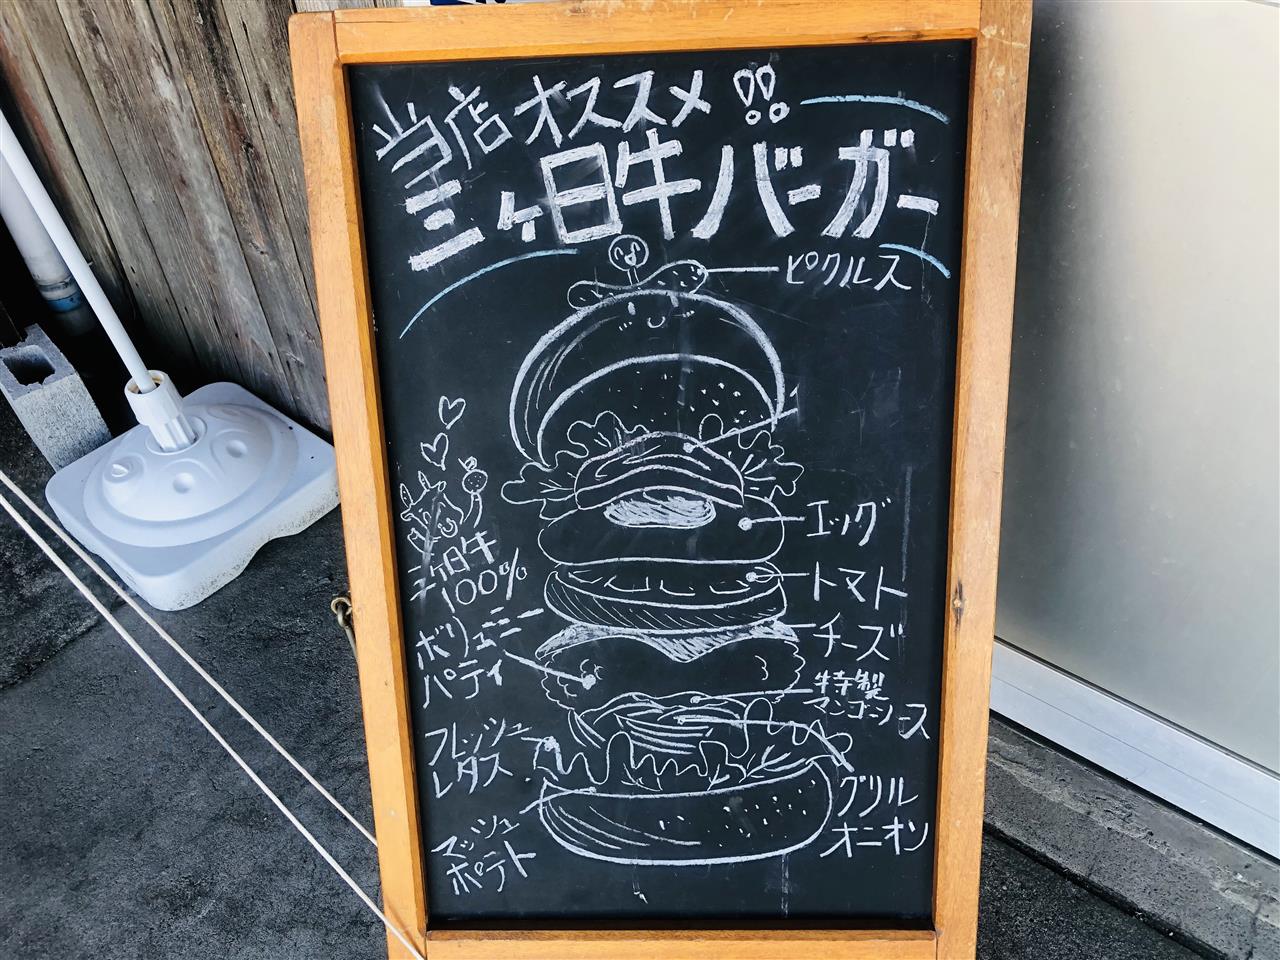 当店オススメ!!
三ヶ日牛バーガー
ピクルス
エッグ
トマト
チーズ
特製
マンゴーソース
グリル
オニオン
三ヶ日牛
100%
ボリューミー
パティ
フレッシュ
レタス
マッシュ
ポテト